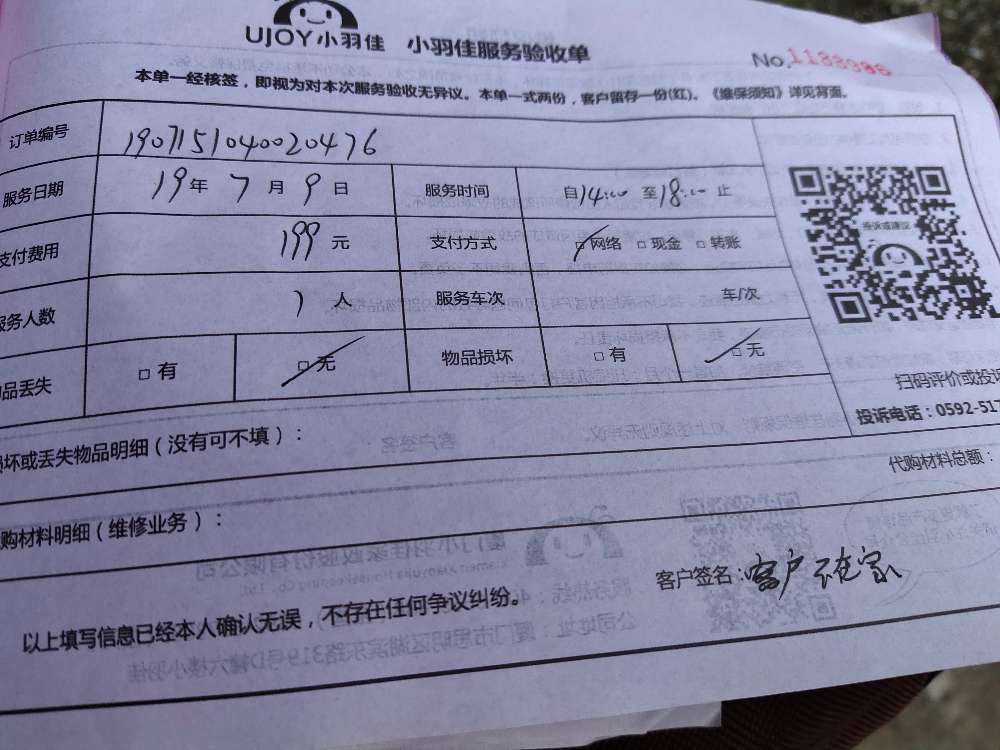 UJOY小羽佳 小羽佳服务验收单
No.1188098
本单一经核签，即视为对本次服务验收无异议。本单一式两份，客户留存一份(红)。《维保须知》详见背面。
订单编号 1907151040020476
服务日期 19年 7月 9日 服务时间 自14:00 至18:00 止
支付费用 199元 支付方式 □网络 □现金 □转账
服务人数 1人 服务车次 车/次
品丢失 □有 □无 物品损坏 □有 □无
投诉或建议
扫码评价或投诉
投诉电话：0592-517
损坏或丢失物品明细（没有可不填）：
代购材料总额：
购材料明细（维修业务）：
客户签名：客户不在家
以上填写信息已经本人确认无误，不存在任何争议纠纷。